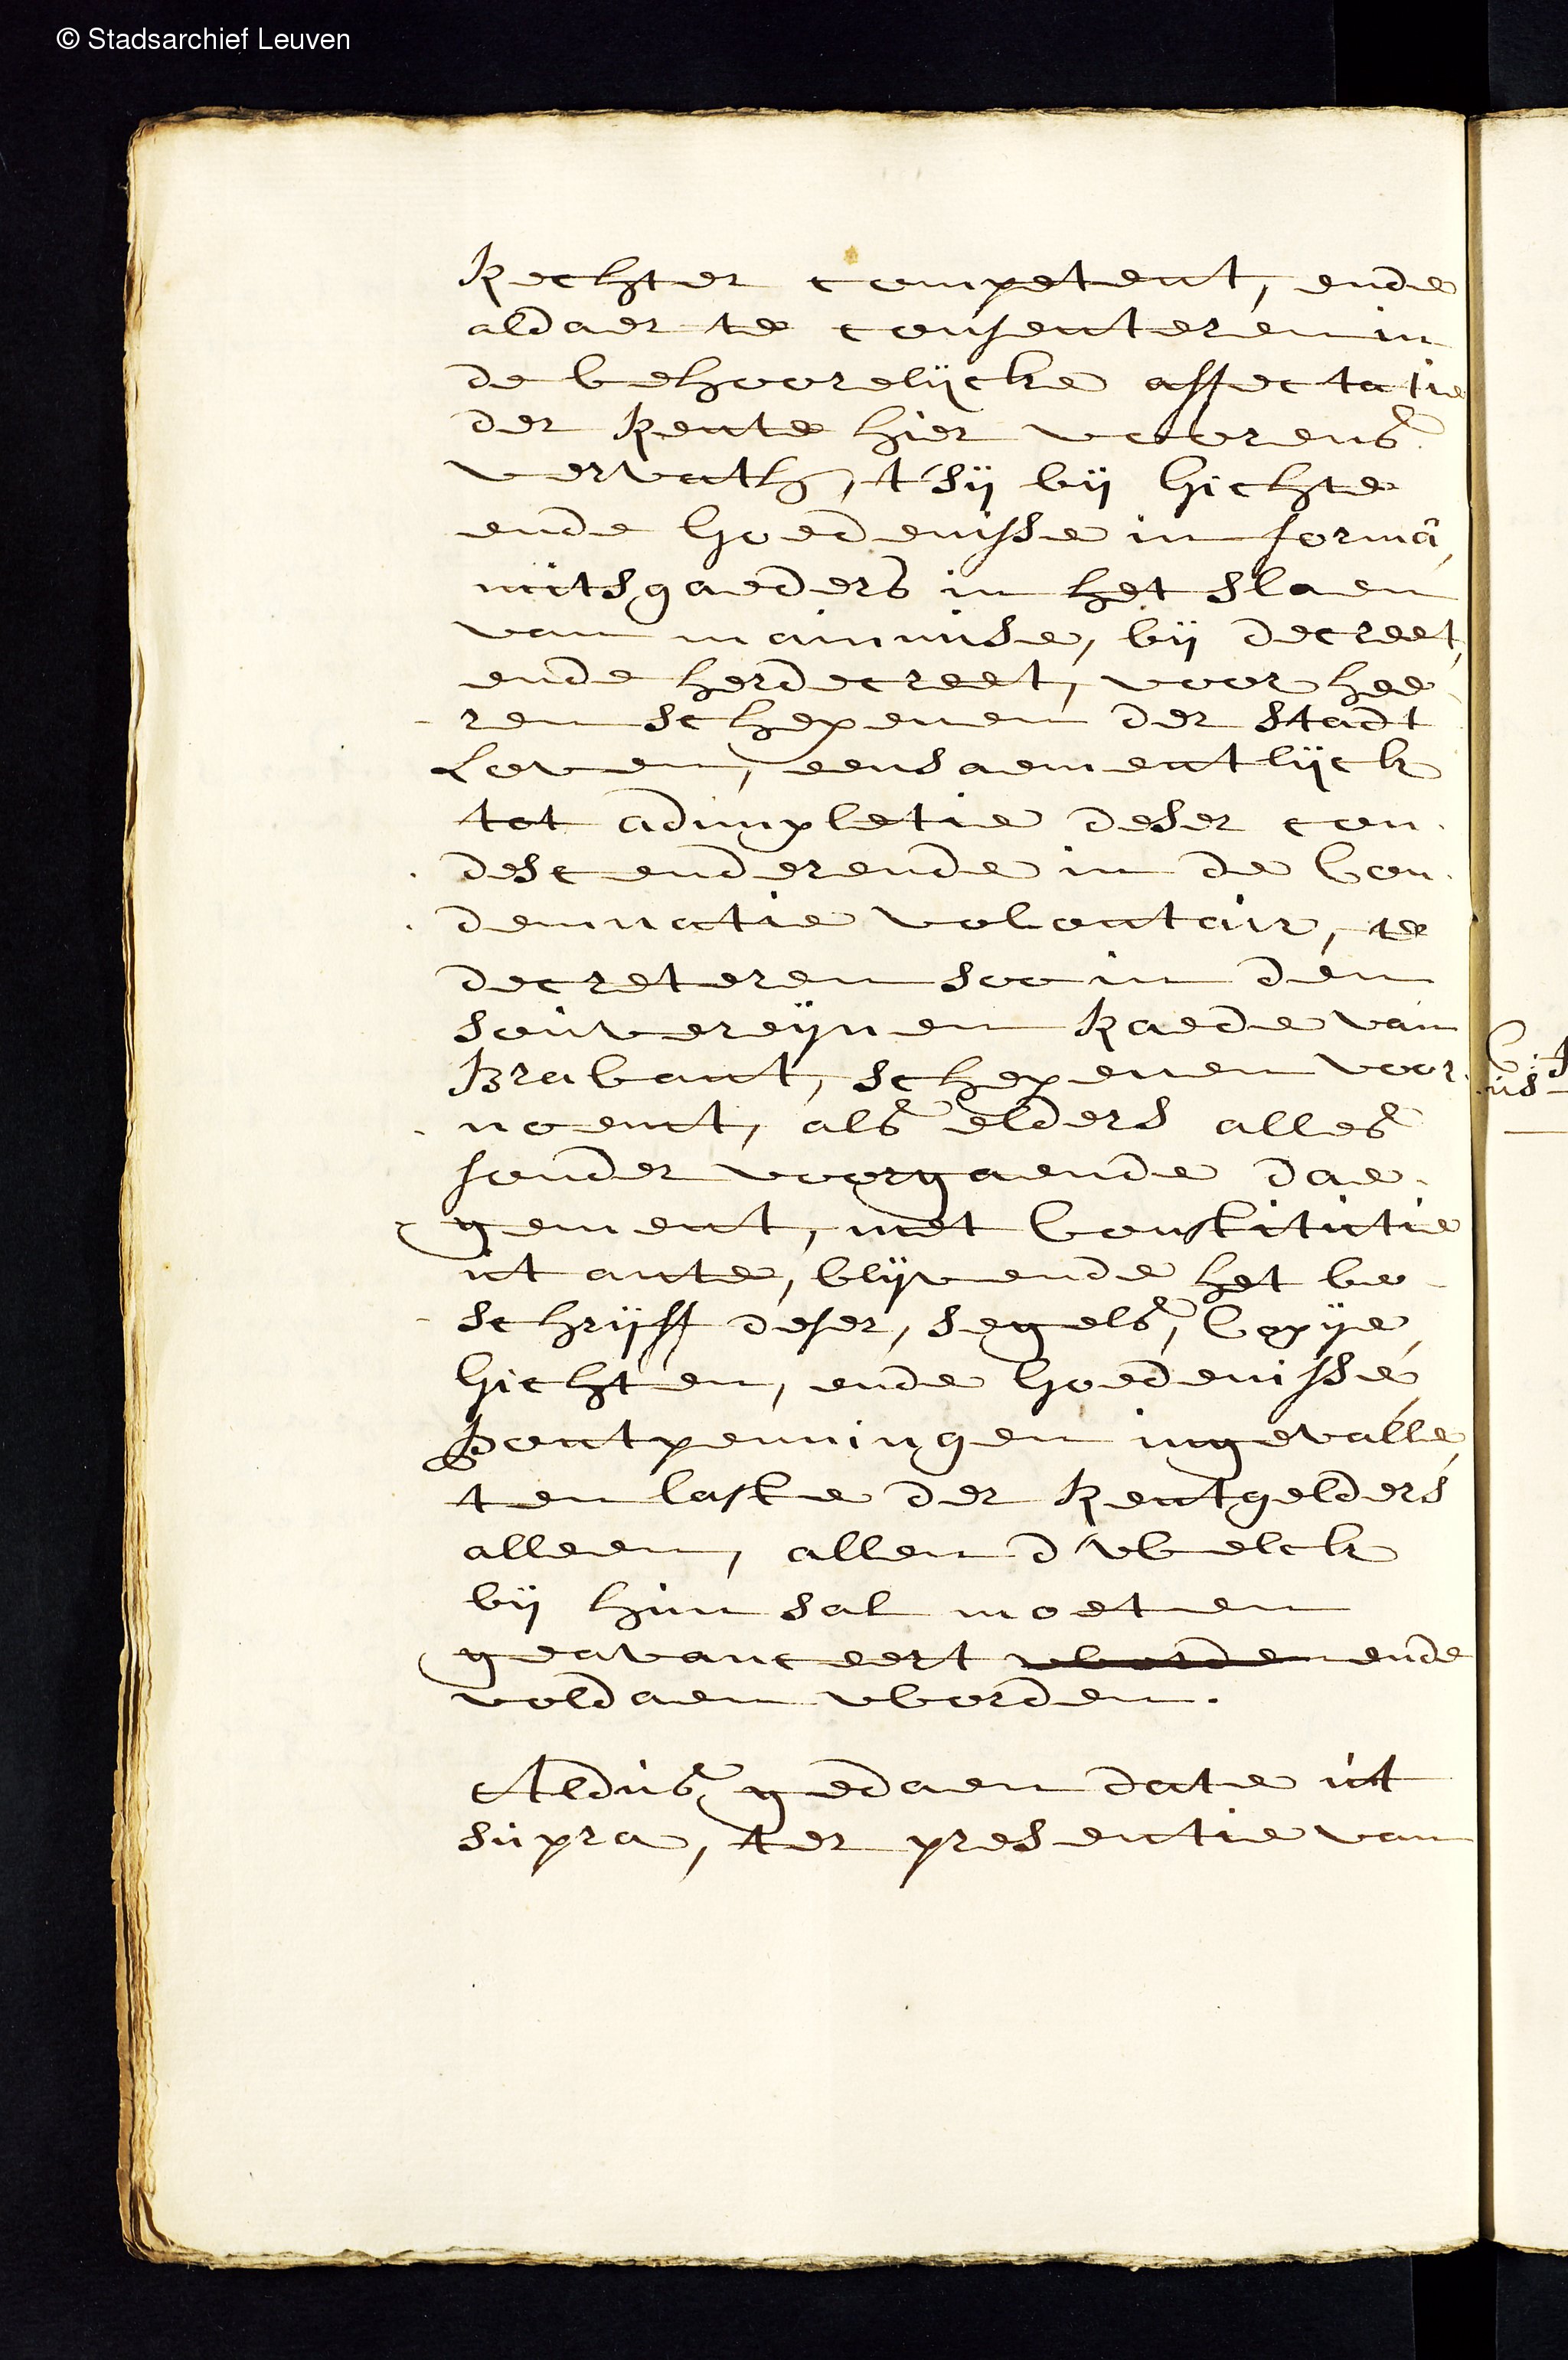 © Stadsarchief Leuven
Rechter competent, ende
aldaer te consenteren in
de behoorelijcke affectatie
der Rente hier voorens
vervath, t'sij bij Gichte
ende Goedenisse in formâ,
mitsgaeders in het slaen
van mainmise, bij decreet,
ende herdecreet, voor hee-
-ren schepenen der Stadt
Loven, eensaementlijck
tot adimpletie deser con-
-descenderende in de Con-
-demnatie volontair, te
decreteren soo in den
souvereijnen Raede van
Brabant, schepenen voor-
-noemt, als elders alles
sonder voorgaende dae-
-gement, met Constitutie
ut ante, blijvende het be-
-schrijff deser, segels, Copije,
Gichten, ende Goedenisse,
Pontpenningen ingevalle,
ten laste der Rentgelders
alleen, allen d'welck
bij hun sal moeten
geavanceert worden ende
voldaen worden.
Aldus gedaen date ut
supra, ter presentie van